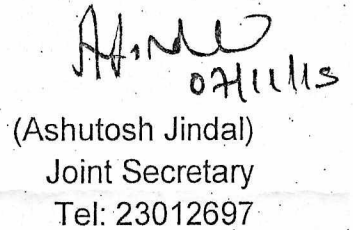 07/11/13
(Ashutosh Jindal)
Joint Secretary
Tel: 23012697